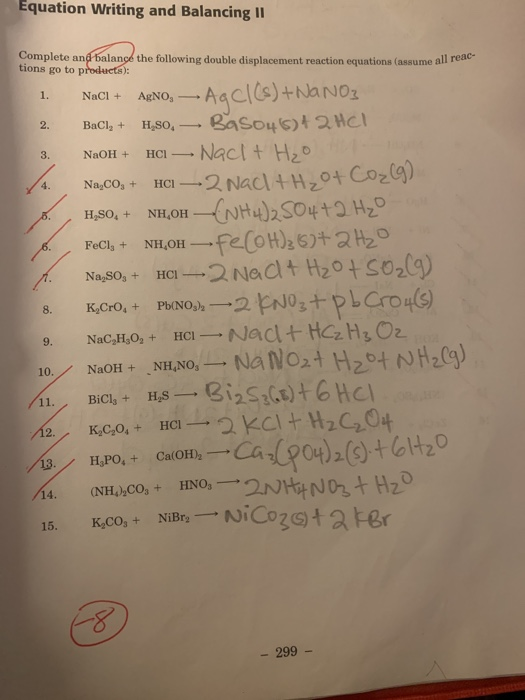 Equation Writing and Balancing II
Complete and balance the following double displacement reaction equations (assume all reac-
tions go to products):
1. NaCl + AgNO₃ → AgCl(s)+NaNO₃
2. BaCl₂ + H₂SO₄ → BaSO₄(s)+2HCl
3. NaOH + HCl → Nacl+H₂O
4. Na₂CO₃ + HCl → 2Nacl+H₂O+CO₂(g)
5. H₂SO₄ + NH₄OH → (NH₄)₂SO₄+2H₂O
6. FeCl₃ + NH₄OH → Fe(OH)₃(s)+2H₂O
7. Na₂SO₃ + HCl → 2Nacl+H₂O+SO₂(g)
8. K₂CrO₄ + Pb(NO₃)₂ → 2KNO₃+pbCrO₄(s)
9. NaC₂H₃O₂ + HCl → Nacl+HC₂H₃O₂
10. NaOH + NH₄NO₃ → NaNO₂+H₂O+NH₂(g)
11. BiCl₃ + H₂S → Bi₂S₃(s)+6HCl
12. K₂C₂O₄ + HCl → 2KCl+H₂C₂O₄
13. H₃PO₄ + Ca(OH)₂ → Ca₃(PO₄)₂(s)+6H₂O
14. (NH₄)₂CO₃ + HNO₃ → 2NH₄NO₃+H₂O
15. K₂CO₃ + NiBr₂ → NiCO₃(s)+2KBr
-8
- 299 -